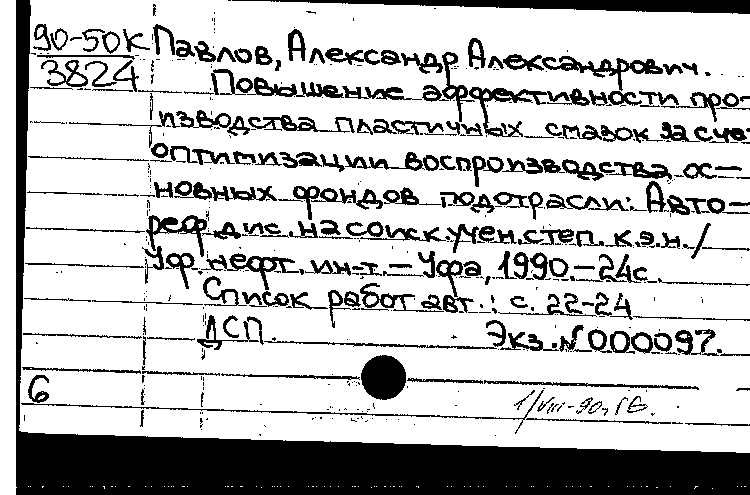 90-50К Павлов, Александр Александрович.
3824 Повышение эффективности про-
изводства пластичных смазок за сче
оптимизации воспроизводства ос-
новных фондов подотрасли: Авто-
реф. дис. на соиск. учен. степ. к.э.н./
Уф. нефт. ин-т. – Уфа, 1990.–24с.
Список работ авт.: с. 22-24
ДСП. Экз. № 000097.
6
1/VIII-90г.